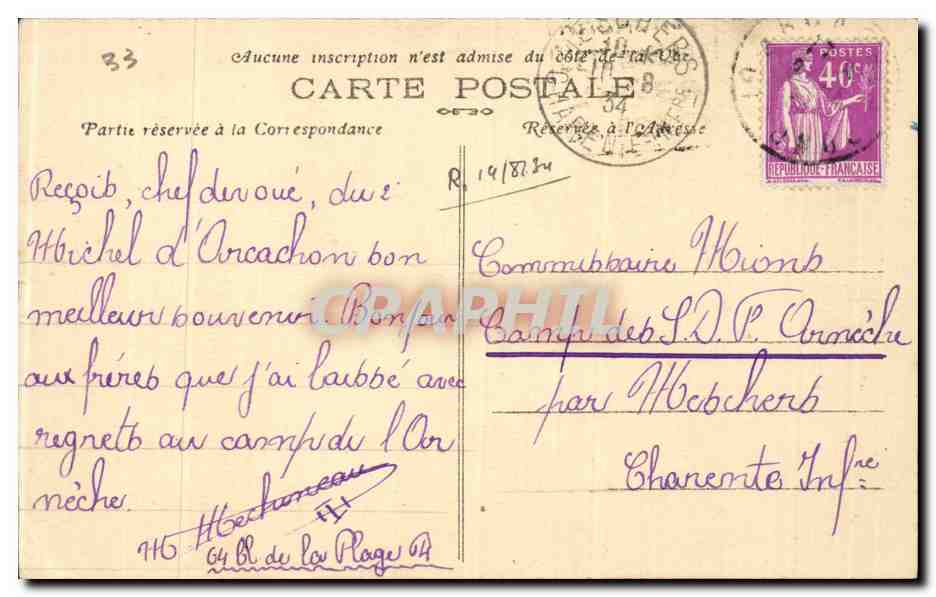 33
Aucune inscription n'est admise du côté de la Vue
CARTE POSTALE
Partie réservée à la Correspondance
Réservée à l'Adresse
POSTES
40c
RÉPUBLIQUE-FRANÇAISE
10
8
34
R. 14/8/34
Reçois, chef devoué, du 2
Michel d'Arcachon bon
meilleur souvenir Bonjour
aux fréres que j'ai laissé avec
regrets au camp de l'Or
nèche.
M Mechoneau
64 Bl de la Plage 64
Commissaire Mions
Camp des S.D.F. Ornèche
par Meschers
Charente Infre
CPAPHIL